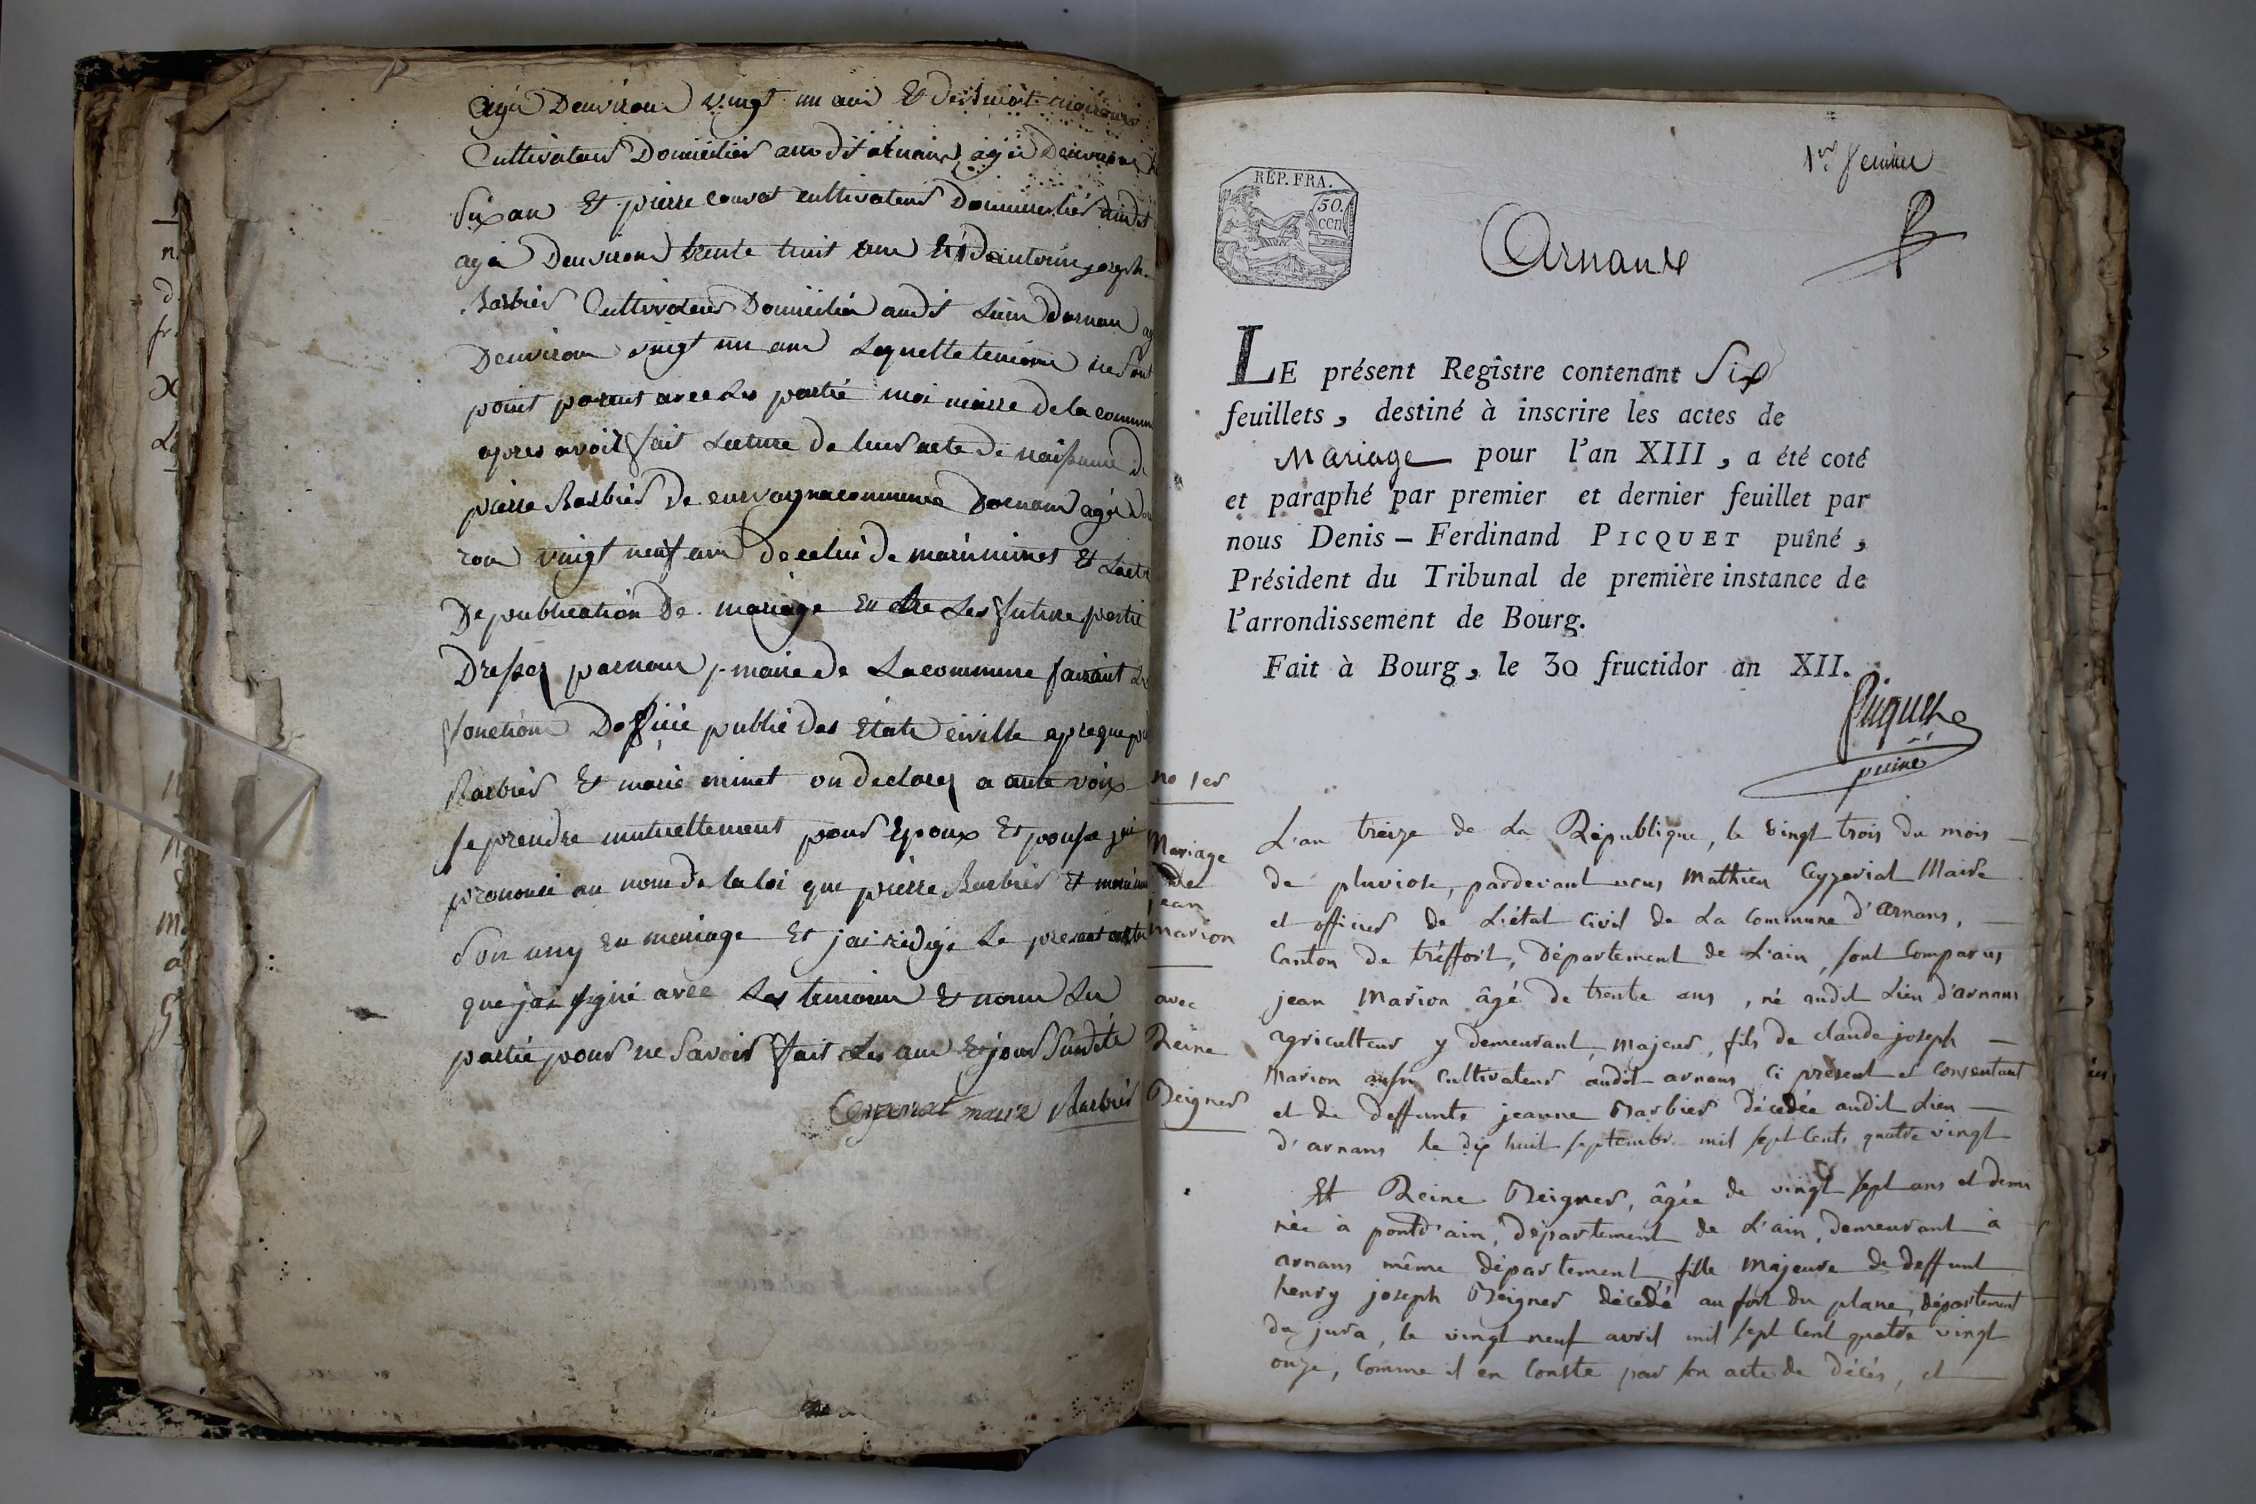 agé Denviron vingt un ans Et de
Cultivateur Domicilié audit arnans agé Denviron
Six an Et pierre convert cultivateur Domicilié audit
agé Denviron trente huit ans Et Dantoine joseph
Barbier Cultivateur Domicilié audit Lieu Darnan
Denviron vingt un ans Lequelle temoins ne sont
point parent avec Les partie moi maire de la commune
apres avoir fait Lecture de leur acte de naissance de
pierre Barbier De commune Darnans agé
ron vingt neuf ans de celui de marie minet Et Lacte
De publication De mariage En tre Les future partie
Dresser par nous maire de La commune faisant Les
fonction Doffice publié des Etate civille apreque
Barbier Et marie minet on declarez a aute voix
se prendre mutuellement pour Epoux Et pouse jai
prononcé au nom de la loi que pierre Barbier Et marie
son uny En mariage Et jai redigé Le present acte
que jai signé avec Les temoins Et nom Les
partie pour ne Savoir fait Les ans Et jour Susdite
Ceyzeriat maire Barbier
1er feuillet
RÉP. FRA.
50.
cen
Arnans
LE présent Registre contenant Six
feuillets, destiné à inscrire les actes de
Mariage pour l'an XIII, a été coté
et paraphé par premier et dernier feuillet par
nous Denis - Ferdinand PICQUET puîné,
Président du Tribunal de première instance de
l'arrondissement de Bourg.
Fait à Bourg, le 30 fructidor an XII.
Picquet
puiné
no 1er
Mariage
de
jean
Marion
avec
Reine
Reigner
L'an treize de La République, le vingt trois du mois
de pluviose, pardevant nous Mathieu Ceyzeriat Maire
et officier de L'état Civil de La Commune d'Arnans,
Canton de tréffort, Département de L'ain, sont Comparus
jean Marion âgé de trente ans, né audit Lieu d'arnans
agriculteur y demeurant, majeur, fils de claude joseph
Marion aussi Cultivateur audit arnans, Ci présent et Consentant
et de deffunte jeanne Barbier décedée audit Lieu
d'arnans le dix huit septembre mil sept Cents quatre vingt
Et Reine Reigner, âgée de vingt sept ans et demi
née à pontd'ain, Département de L'ain, demeurant à
arnans même département, fille Majeure de deffunt
henry joseph Reigner décedé au fort du plane, département
du jura, le vingt neuf avril mil sept Cent quatre vingt
onze, Comme il en Conste par son acte de décès, et